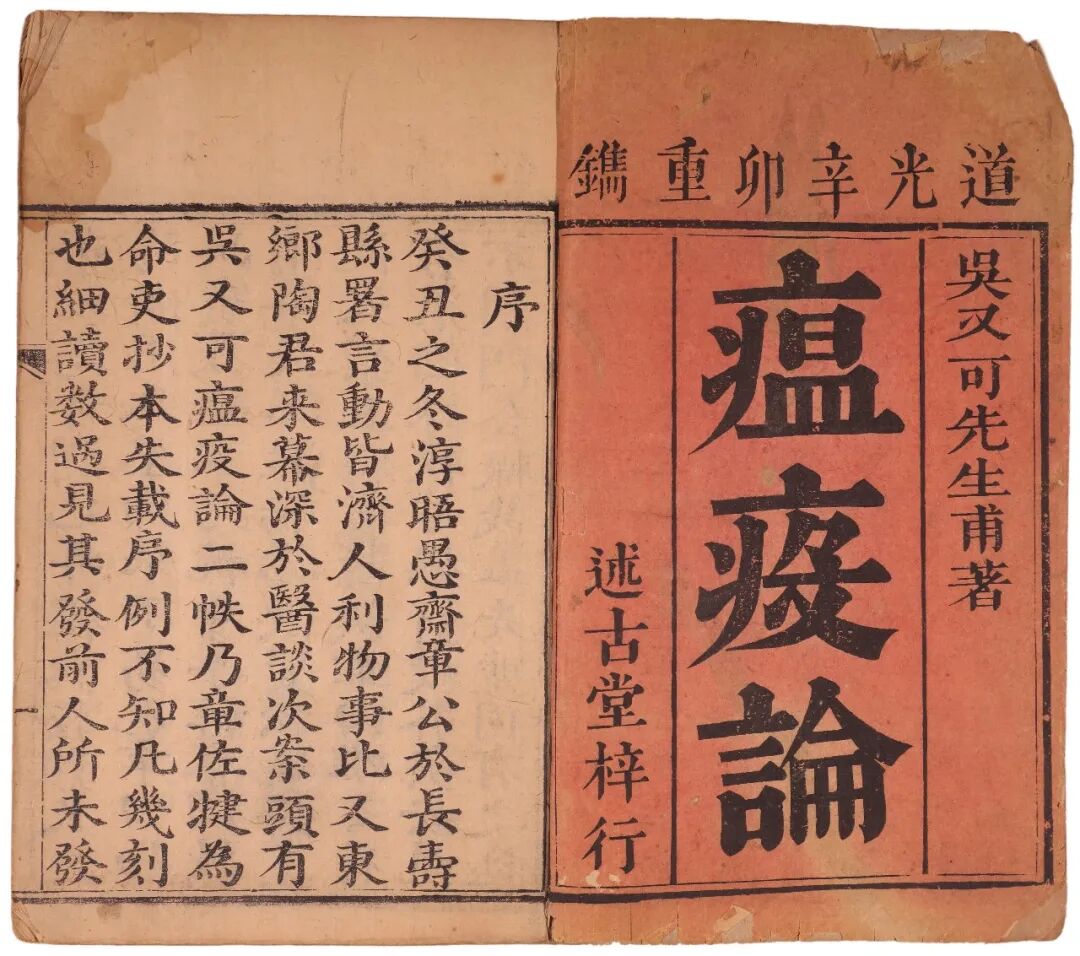 道光辛卯重鐫
吳又可先生甫著
瘟疫論
述古堂梓行
序
癸丑之冬淳晤愚齋章公於長壽
縣署言動皆濟人利物事比又東
鄉陶君来幕深於醫談次案頭有
吳又可瘟疫論二帙乃章佐犍為
命吏抄本失載序例不知凡幾刻
也細讀数過見其發前人所未發